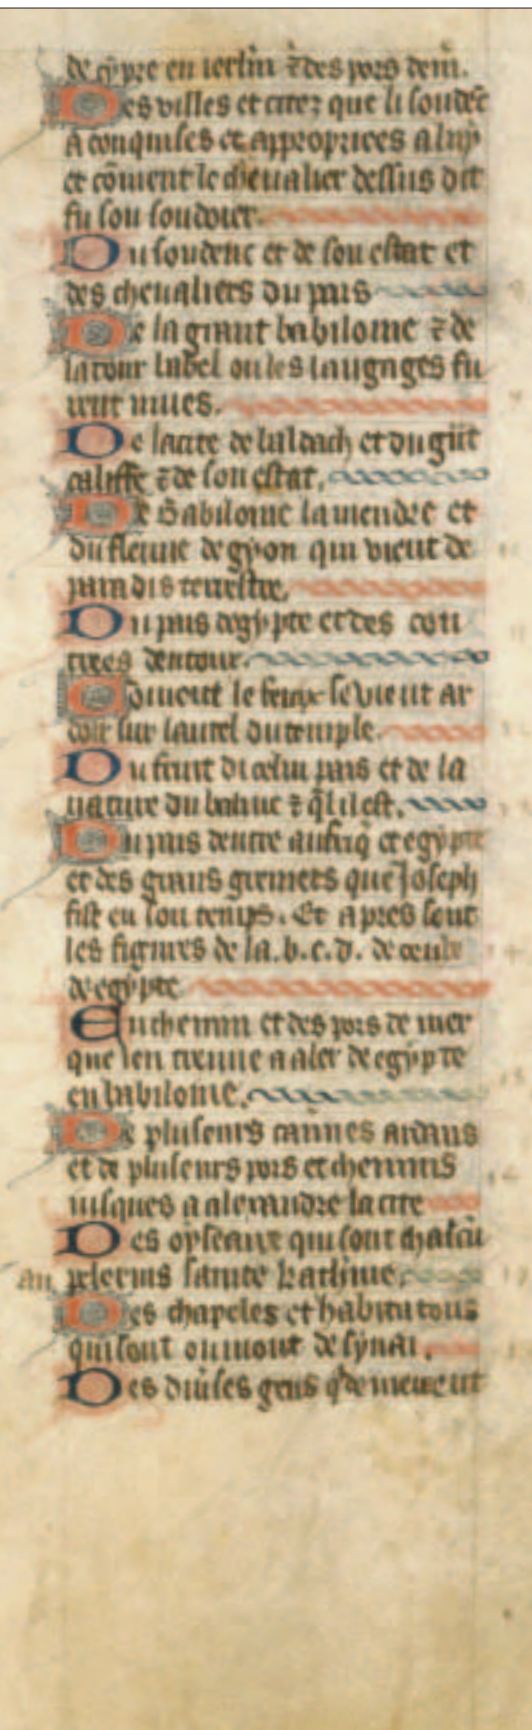 de cypre en ierlm̄ ⁊ des pors dem̄.
Des villes et citez que li soudēc
a conquises et appropriees a luy
et cōment le cheualier dessus dit
fu son soudoier.
Du soudenc et de son estat et
des cheualiers du pais
De la grant babilonie ⁊ de
la tour babel ou les langages fu
rent mues.
De la cite de baldach et du gūt
califfe ⁊ de son estat.
De Babilonie la mendre et
du fleuue de gyon qui vient de
paradis terrestre.
Du pais degypte et des con
trees dentour.
Coment le fenix se vient ar
doir sur lautel du temple.
Du fruit dicelui pais et de la
nature du baume ⁊ q̄l il est.
Du pais dentre aufriq̄ et egypte
et des grans greniers que Joseph
fist en son temps. Et apres sont
les figures de la .b.c.d. de ceulx
de egypte
En chemin et des pors de mer
que len treuue a aler de egypte
en babilonie.
De pluseurs cannes ardans
et de pluseurs pors et chemins
iusques a alexandre la cite
Des oyseaux qui sont chascū
an pelerins sainte katherine.
Des chapeles et habitatons
qui sont ou mont de synai.
Des diuses gens q̄ demeurent